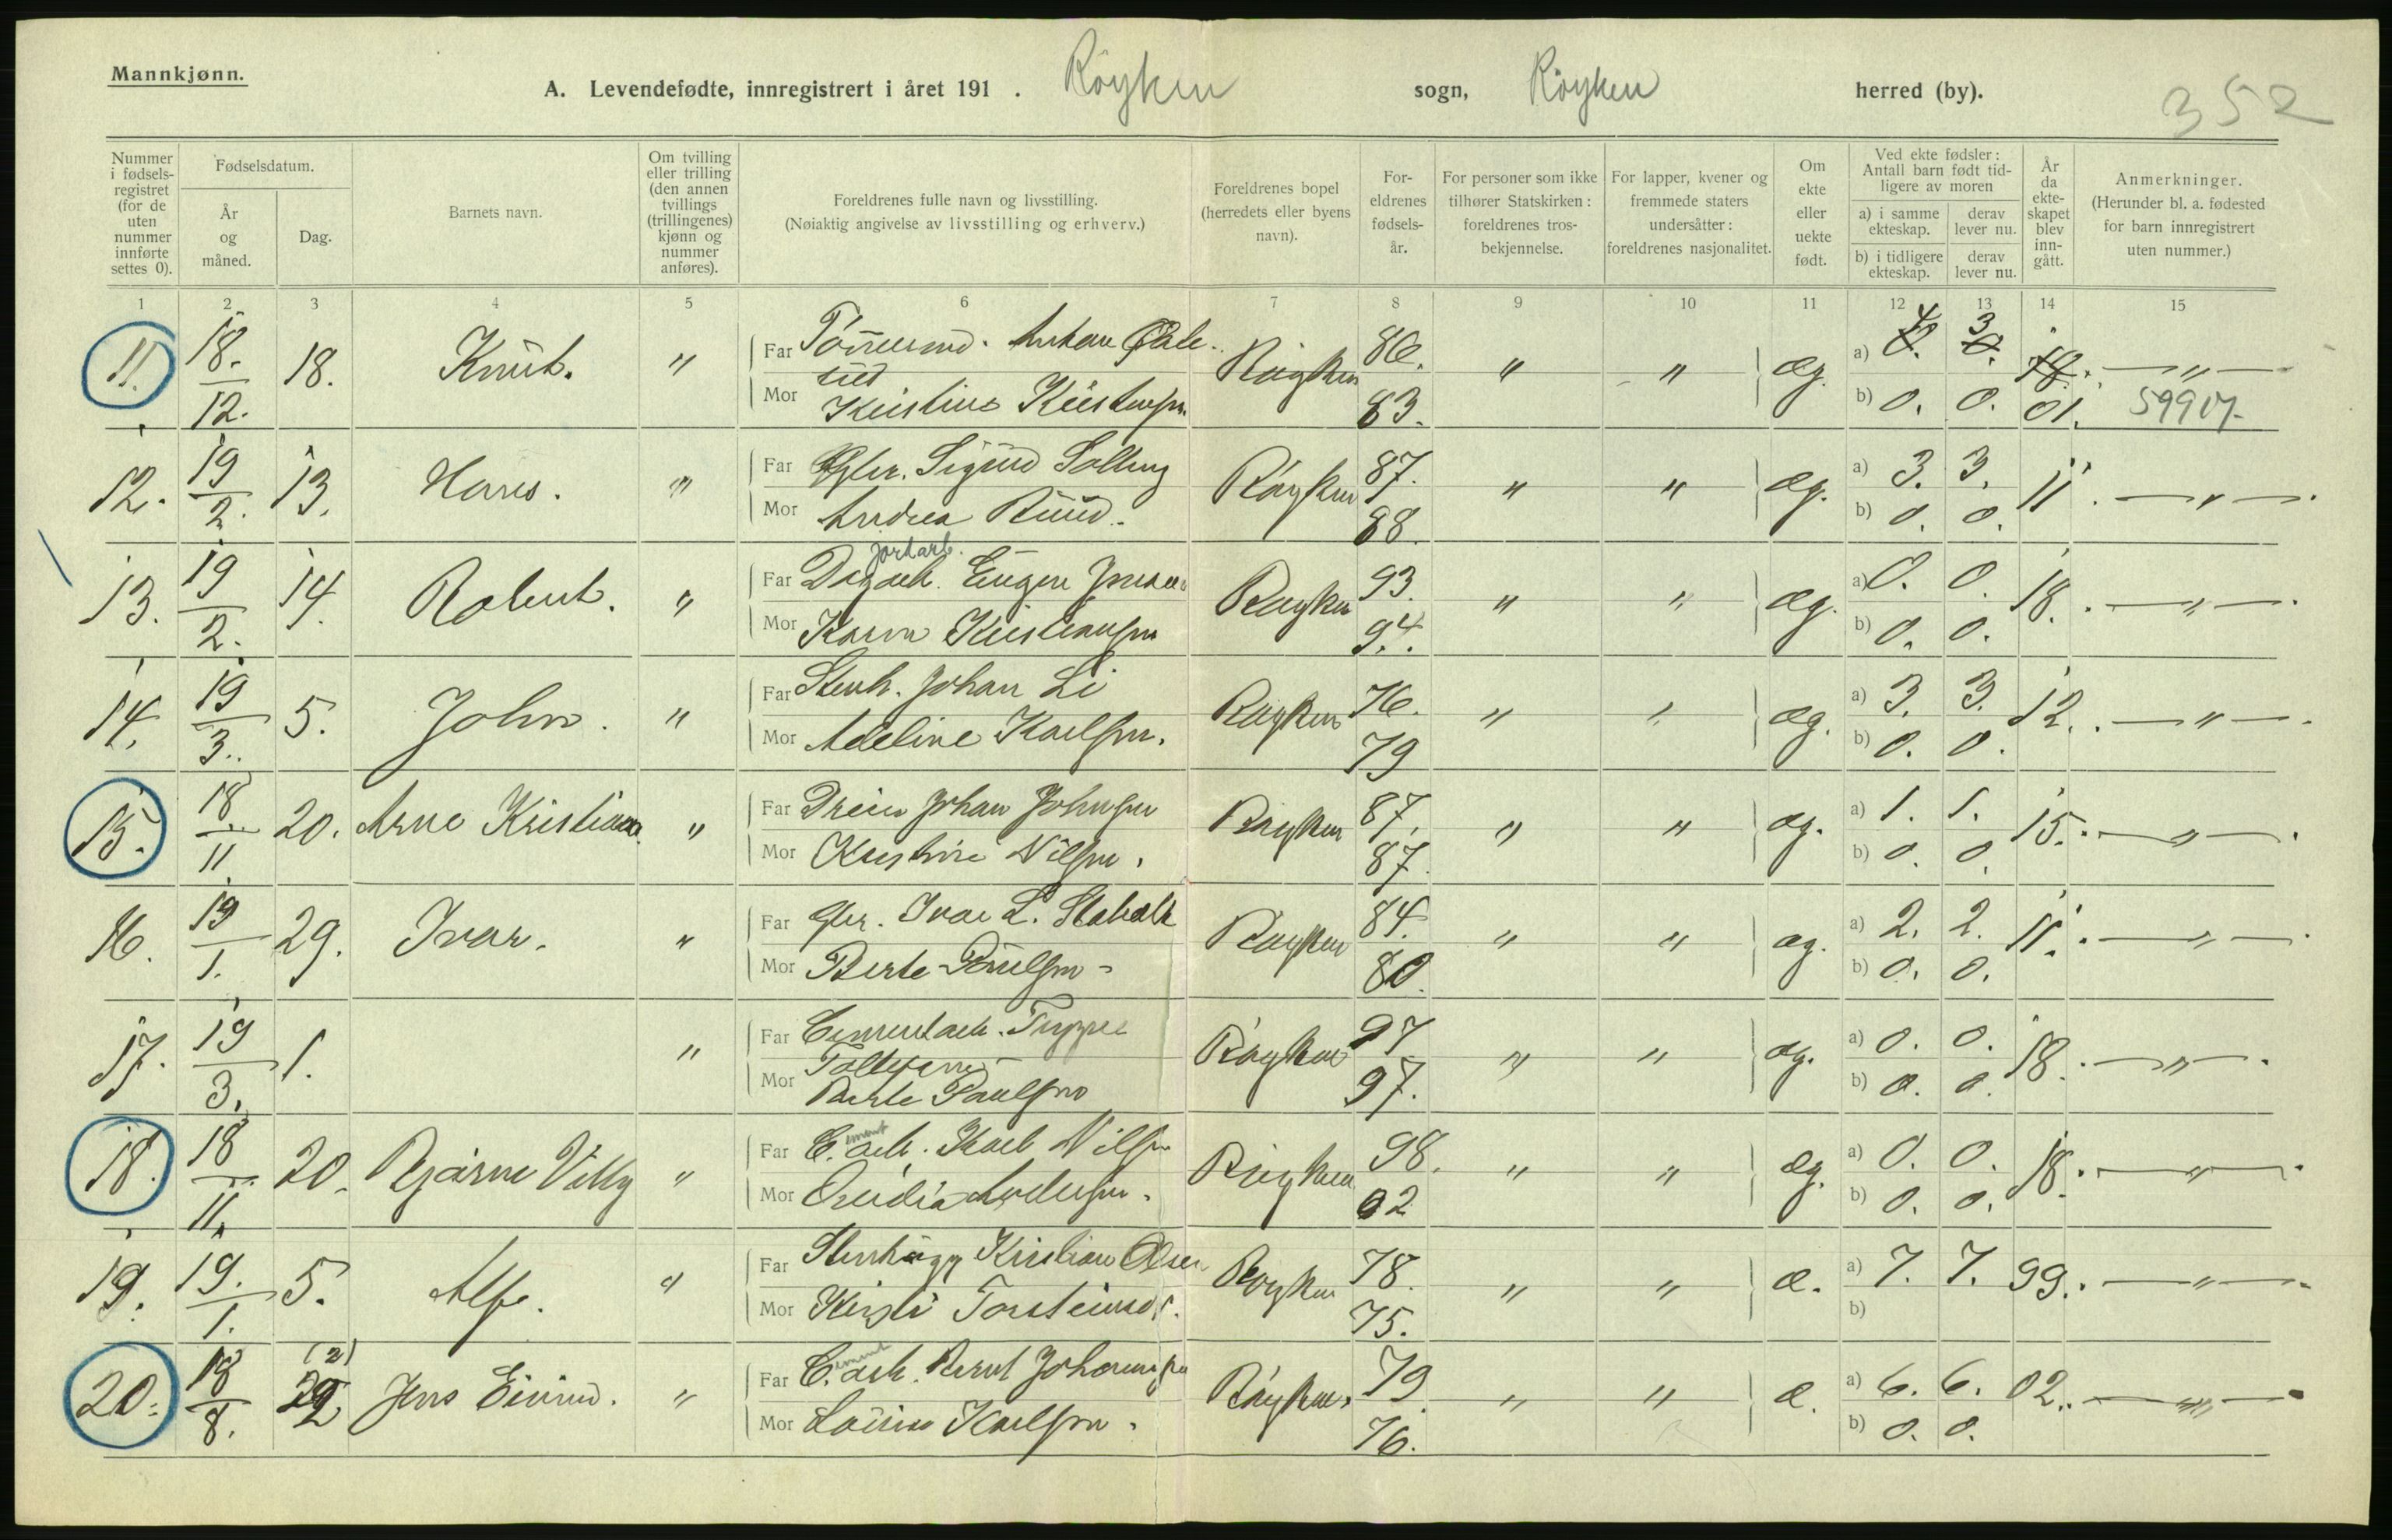 Mannkjønn.
A. Levendefødte, innregistrert i året 191 . Røyken sogn, Røyken herred (by).
352
Nummer i fødsels-registret (for de uten nummer innførte settes 0).
Fødselsdatum.
År og måned.
Dag.
Barnets navn.
Om tvilling eller trilling (den annen tvillings (trillingenes) kjønn og nummer anføres).
Foreldrenes fulle navn og livsstilling.
(Nøiaktig angivelse av livsstilling og erhverv.)
Foreldrenes bopel (herredets eller byens navn).
For-eldrenes fødsels-år.
For personer som ikke tilhører Statskirken: foreldrenes tros-bekjennelse.
For lapper, kvener og fremmede staters undersåtter: foreldrenes nasjonalitet.
Om ekte eller uekte født.
Ved ekte fødsler: Antall barn født tid-ligere av moren
a) i samme ekteskap. derav lever nu.
b) i tidligere ekteskap. derav lever nu.
År da ekte-skapet blev inn-gått.
Anmerkninger.
(Herunder bl. a. fødested for barn innregistrert uten nummer.)
1 2 3 4 5 6 7 8 9 10 11 12 13 14 15
11. 18. 12. 18. Knut. " Far Anton Røyken 86. " " æg. a) 4 3 — " —
Mor 83. b) 0. 0. 01.
12. 19 2. 13. Hans. " Far Sigurd Røyken 87. " " æg. a) 3. 3. 11. — " —
Mor Andrea Ruud. 88. b) 0. 0.
jordarb.
13. 19 2. 14. Robert. " Far Dagarb. Eugen Røyken 93. " " æg. a) 0. 0. 18. — " —
Mor Karen Kristiansen 94. b) 0. 0.
14. 19 3. 5. John. " Far Stenh. Johan Li Røyken 76. " " æg. a) 3. 3. 12. — " —
Mor Adeline Karlsen. 79 b) 0. 0.
15. 18 11. 20. Arne Kristian. " Far Johan Johnsen Røyken 87. " " æg. a) 1. 1. 15. — " —
Mor Kristine Nilsen. 87. b) 0. 0.
16. 19 1. 29. Ivar. " Far Ivar L. Røyken 84. " " æg. a) 2. 2. 11. — " —
Mor Berte Poulsen 80. b) 0. 0.
17. 19 3. 1. " Far Cementarb. Røyken 97 " " æg. a) 0. 0. 18. — " —
Mor Paulsen 97. b) 0. 0.
18. 18 11. 20. Bjarne Villy " Far C.ement arb. Karl Nilsen Røyken 98. " " æg. a) 0. 0. 18. — " —
Mor Andersen. 02 b) 0. 0.
19. 19. 1. 5. Alf. " Far Stenhugg Kristian Olsen Røyken 78. " " æ. a) 7. 7. 99. — " —
Mor Kirsti 75. b)
20. 18 8. (2) Jens Eivind. " Far C.ement arb. Bernt Johannesen Røyken. 79. " " æ. a) 6. 6. 02. — " —
Mor Karlsen. 76. b) 0. 0.